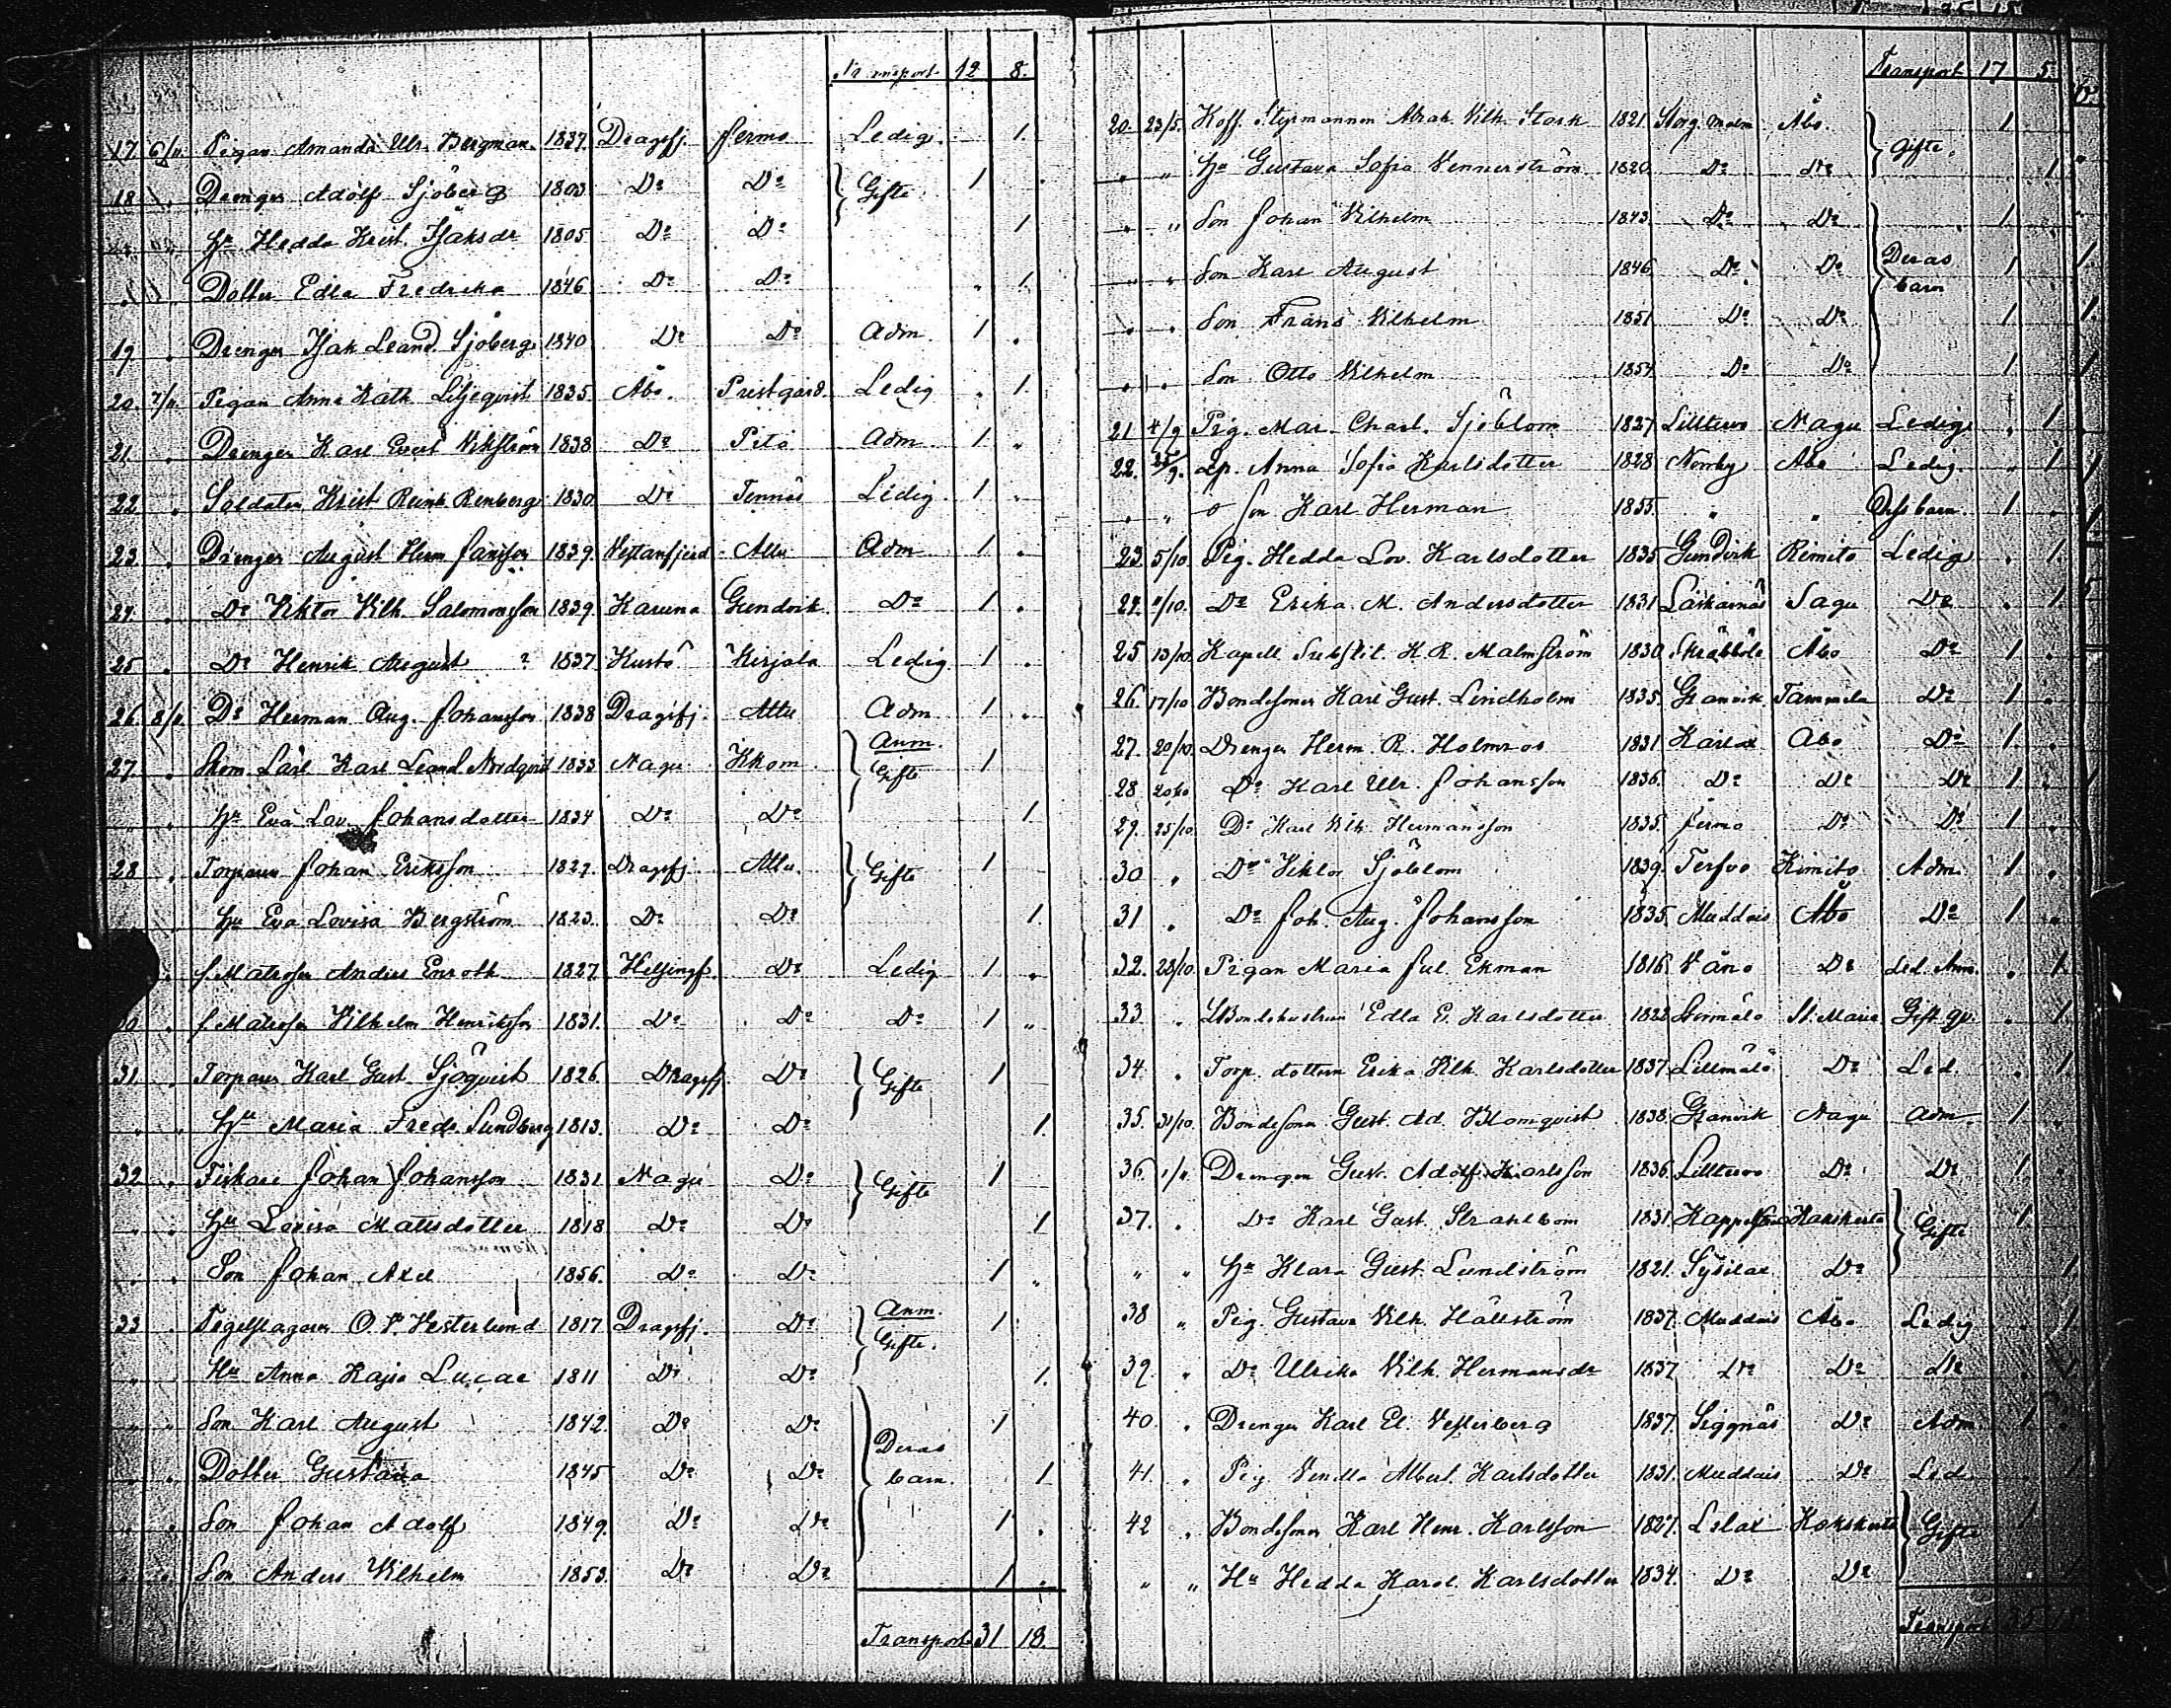 Transport 12 8.
17 6/11. Pigan Amanda Ulr. Bergman 1837. Dragsfj. Jermo Ledig 1.
18 Drengen Adolf Sjöberg 1803 Do Do Gifte 1
Hu Hedda Krist. Isaksdr 1805 Do Do 1
Dotter Edla Fredrika 1846 Do Do 1.
19 Drengen Isak Leand. Sjöberg 1840 Do Do Adm. 1
20. 7/11. Pigan Anna Kath. Liljeqvist 1835. Åbo. Prestgård. Ledig 1.
21. Drengen Karl Evert Vikström 1838 Do Adm. 1.
22 Soldaten Krist Reinh. Renberg 1830 Do Ledig 1
23. Drengen August Herm. Jansson 1839. Vestanfjerd Attu Adm 1
24. Do Viktor Vilh. Salomonsson 1839. Karuna Gundvik. Do 1
25 Do Henrik August ? 1837 Kustö Kirjala Ledig 1
26. 8/11. Do Herman Aug. Johansson 1838 Dragsfj. Attu Adm 1
27. Karl Leand. Nordqvist 1833 Nagu. Anm. Gifte 1
Hu Eva Lov. Johansdotter 1834 Do Do 1
28 Torparen Johan Eriksson 1827. Dragsfj. Attu. Gifte 1
Hu Eva Lovisa Bergström 1823. Do Do 1.
f. Matrosen Anders Enroth 1827. Helsingf. Do Ledig 1
30 f. Matrosen Vilhelm Henriksson 1831. Do Do Do 1 "
31. Torparen Karl Gust. Sjöqvist 1826. Dragsfj. Do Gifte 1
Hu Maria Fredr. Sundberg 1813. Do Do 1.
32 Fiskare Johan Johansson 1831 Nagu Do Gifte 1
" Hu Lovisa Mattsdotter 1818 Do Do 1
Son Johan Axel 1856. Do Do 1 "
33 Tegelslagaren O. V. Vesterlund 1817 Dragsfj. Do Anm. Gifte. 1
" Hu Anna Kajsa Lucae 1811 Do Do 1.
" " Son Karl August 1842. Do Do Deras barn. 1
" Dotter Gustava 1845 Do Do 1
" Son Johan Adolf 1849. Do Do 1
" Son Anders Vilhelm 1853. Do Do 1
Transport 31 18.
Transport 17 5.
20. 23/5. Koff. Styrmannen Abrah. Vilh. Stark 1821 Storg. malm Åbo. Gifte. 1
" " Hu Gustava Sofia Vennerström 1820 Do Do 1.
" " Son Johan Vilhelm 1843. Do Do Deras barn 1
" " Son Karl August 1846 Do Do 1
" Son Frans Vilhelm 1851 Do Do 1
" Son Otto Vilhelm 1854 Do Do 1
21 4/9 Pig. Mar. Charl. Sjöblom 1827 Lilltervo Nagu Ledig 1.
22. 25/9. Anna Sofia Karlsdotter 1828 Norrby Åbo Ledig 1
" " o Son Karl Herman 1855. " " Dess barn. 1
23. 5/10. Pig. Hedda Lov. Karlsdotter 1835 Gundvik Rimito Ledig 1.
24. 11/10. Do Erika M. Andersdotter 1831 Sagu Do 1.
25 13/10. Kapell. Substit. K. R. Malmström 1830 Skräbböle Åbo Do 1
26. 17/10 Bondesonen Karl Gust. Lindholm 1835. Granvik Tammela Do 1
27. 20/10. Drengen Herm. R. Holmroos 1831 Karlax Åbo Do 1.
28. 20/10 Do Karl Ulr. Johansson 1836. Do Do Do 1.
29. 25/10. Do Karl Vilh. Hermansson 1835. Jermo Do Do 1
30 " Do Viktor Sjöblom 1839. Tersvo Kimito Adm. 1
31 " Do Joh. Aug. Johansson 1835. Muddais Åbo Do 1
32. 28/10. Pigan Maria Jul. Ekman 1816. Väno Do Led. Anm. 1.
33. " Bondehustrun Edla E. Karlsdotter 1823 St. Marie Gift qv. 1.
34. " Torp. dottern Erika Vilh. Karlsdotter 1837 Lillmälö Do Led. 1.
35. 31/10. Bondesonen Gust. Ad. Blomqvist 1838. Granvik Nagu Adm. 1
36. 1/11. Drengen Gust. Adolf Karlsson 1836. Lilltervo Do Do 1
37. " Do Karl Gust. Strahlbom 1831. Kakskerta Gifte 1
" " Hu Klara Gust. Lundström 1821. Sysilax Do 1.
38 " Pig. Gustava Vilh. Hällström 1837. Muddais Åbo Ledig 1
39. " Do Ulrika Vilh. Hermansdr 1837 Do Do Do 1
40. " Drengen Karl El. Vesterberg 1837. Siggnäs Do Adm. 1
41. " Pig. Vendla Albert. Karlsdotter 1831. Muddais Do Led. 1
42 " Bondesonen Karl Henr. Karlsson 1827. Lilax Kakskerta Gifte 1
" " Hu Hedda Karol. Karlsdotter 1834. Do Do
Transport